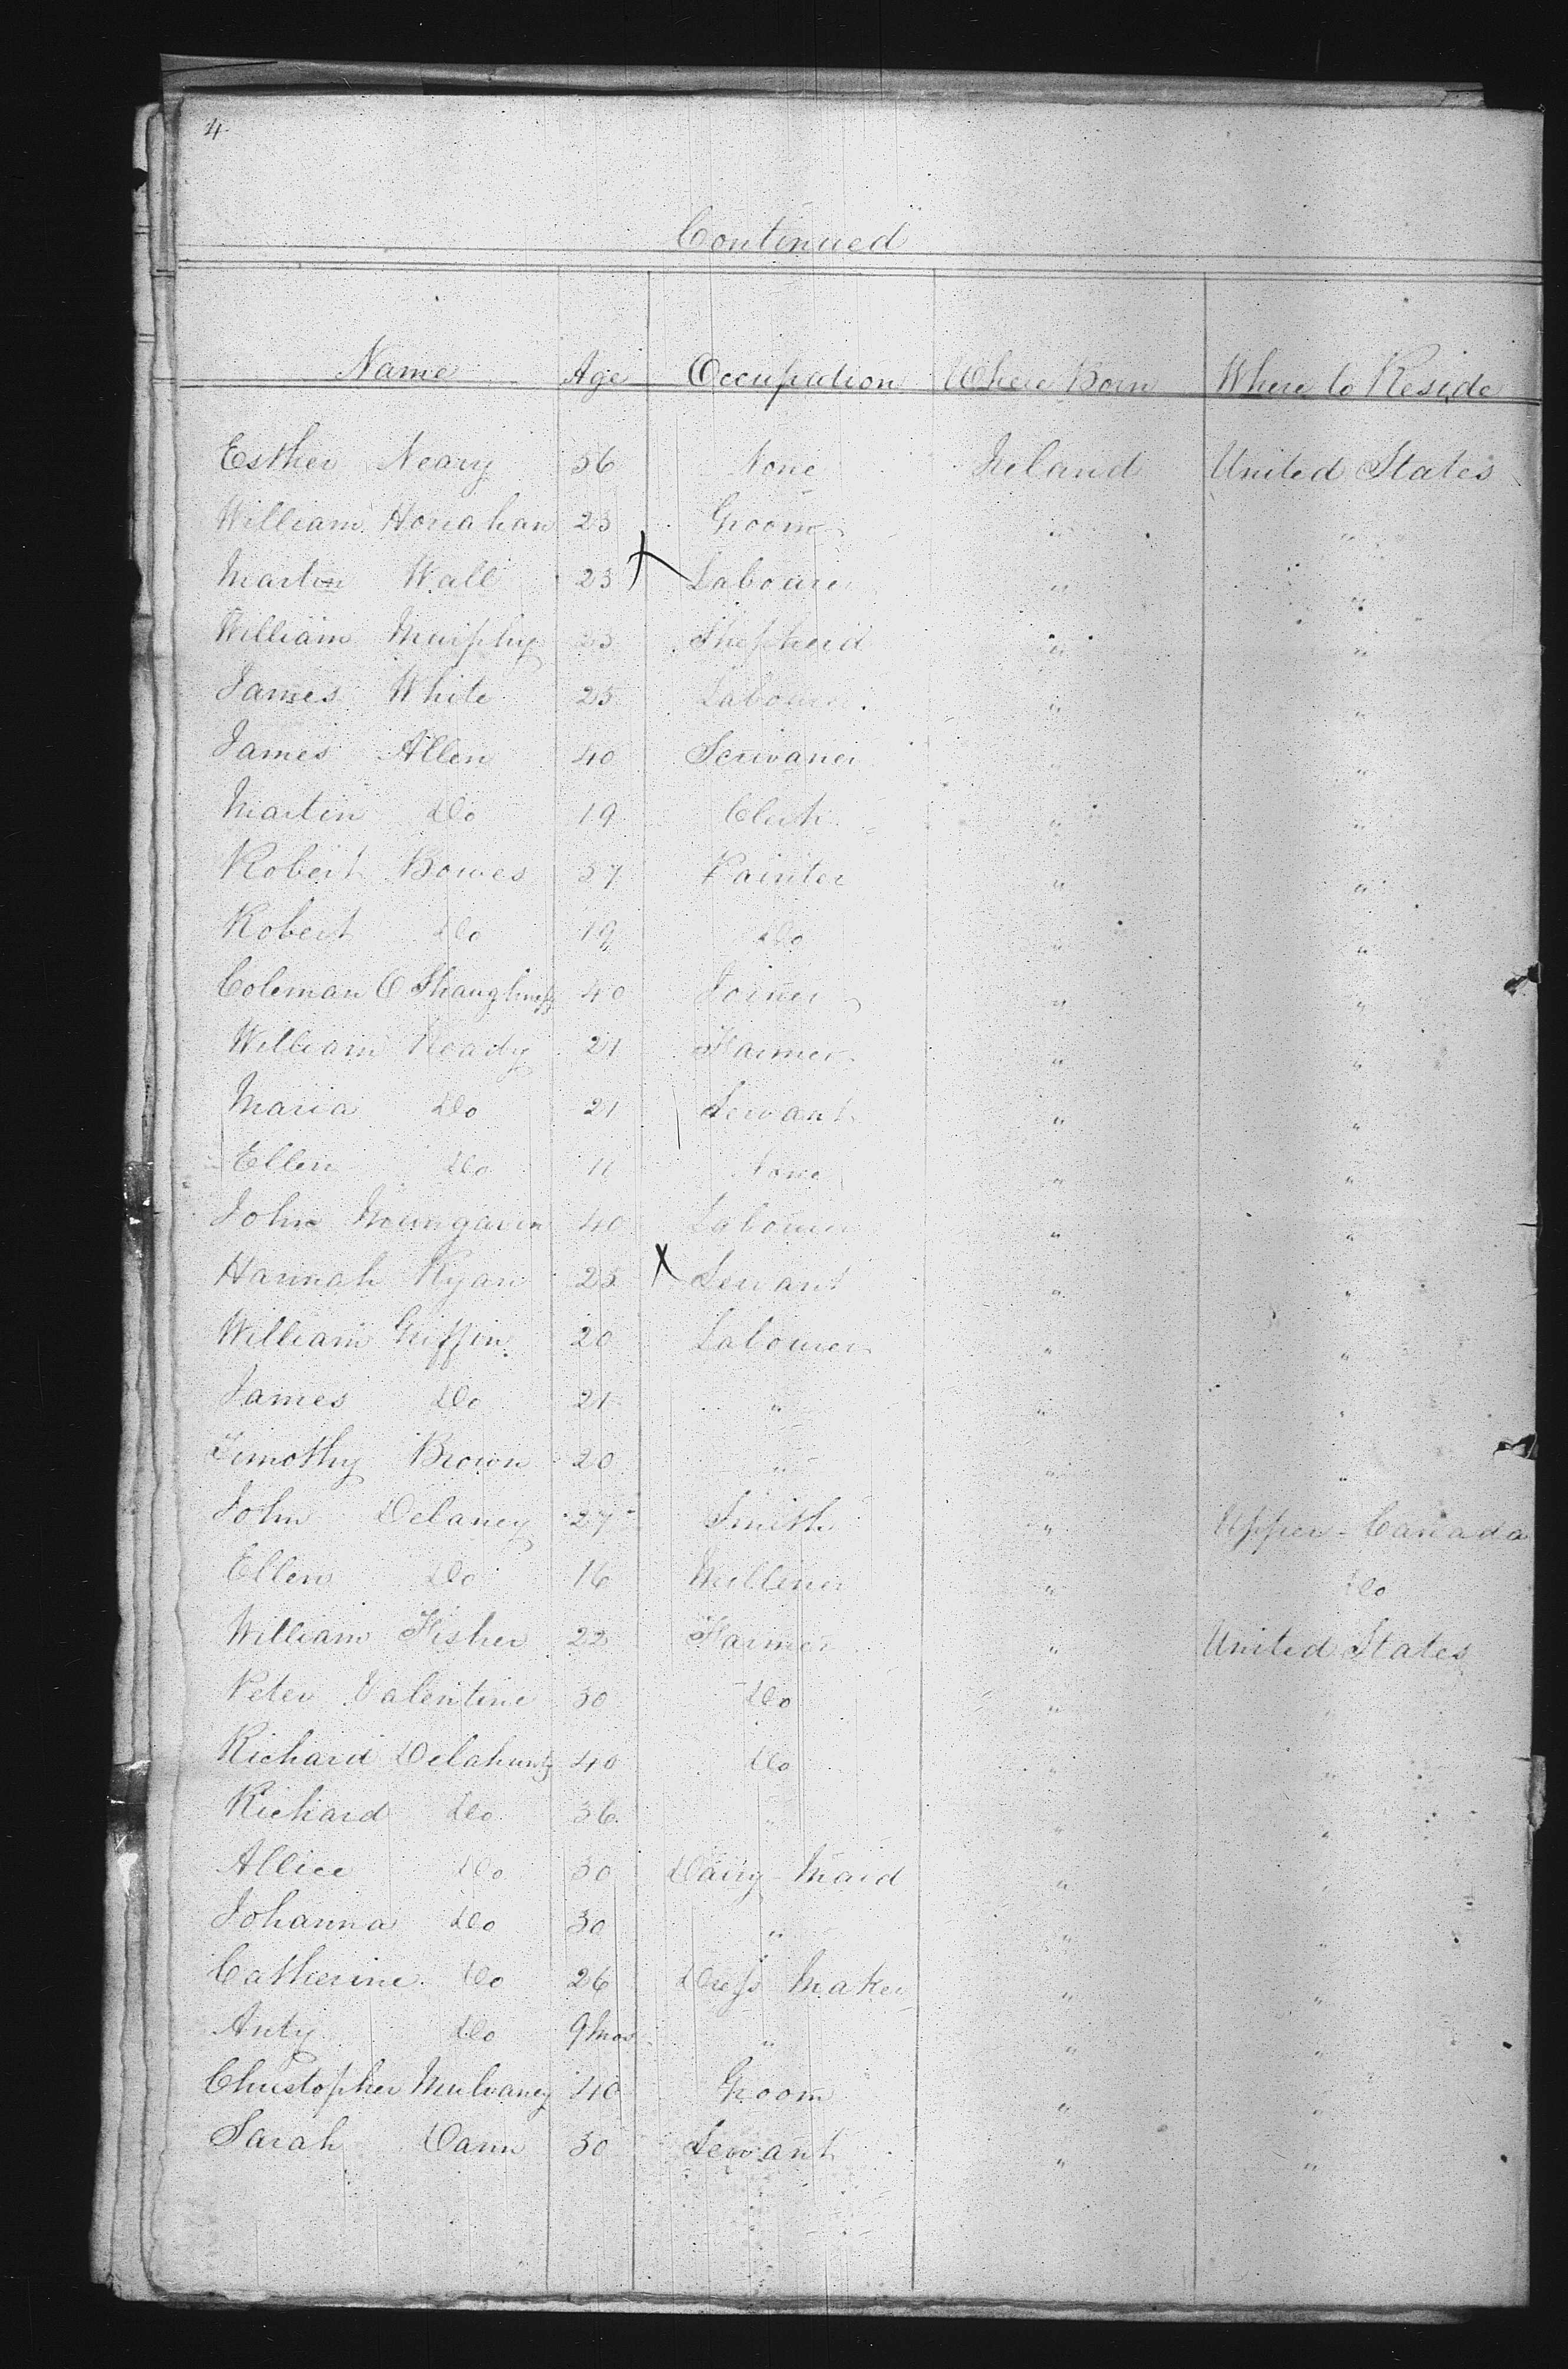 4
Continued
Name Age Occupation Where Born Where to Reside
Esther Neary 56 None Ireland United States
William Horahan 23 Groom " "
Martin Wall 23 Labourer " "
William Murphy 23 Shepherd " "
James White 25 Labourer " "
James Allen 40 Scrivaner " "
Martin Do 19 Clerk " "
Robert Bowes 57 Painter " "
Robert Do 19 Do " "
Coleman O Shaughnessy 40 Joiner " "
William Ready 21 Farmer " "
Maria Do 21 Servant " "
Ellen Do 11 None " "
John 40 Labourer " "
Hannah Ryan 25 X Servant " "
William Griffin 20 Labourer " "
James Do 21 " " "
Timothy Brown 20 " " "
John Delaney 27 Smith " Upper-Canada
Ellen Do 16 Milliner " Do
William Fisher 22 Farmer " United States
Peter Valentine 30 Do " "
Richard Delahunty 40 Do " "
Richard Do 36 " " "
Allice Do 30 Dairy-Maid " "
Johanna Do 30 " " "
Catherine Do 26 Dress Maker " "
Anty Do 9 Mos " " "
Christopher Mulvaney 40 Groom " "
Sarah Dann 30 Servant " "